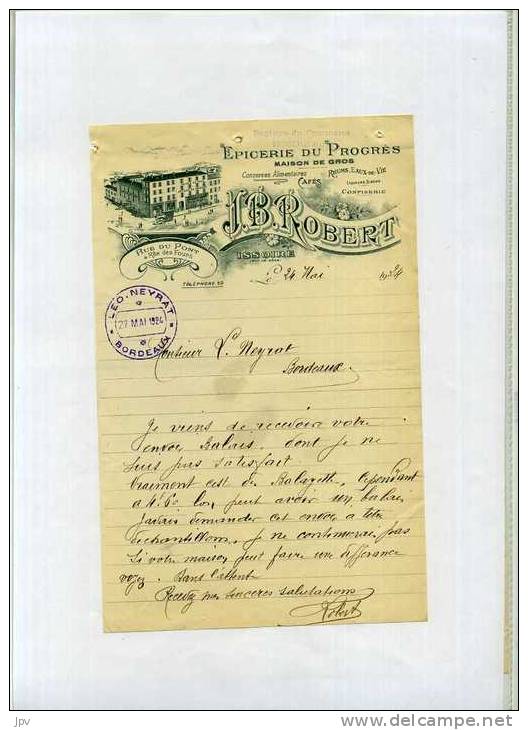 Registre du Commerce
EPICERIE DU PROGRÈS
MAISON DE GROS
Conserves Alimentaires
CAFÉS
RHUMS, EAUX-DE-VIE
CONFISERIE
J.B. ROBERT
ISSOIRE
RUE DU PONT
& Rue des Fours
TÉLÉPHONE
Le 24 Mai 1924
LÉO. NEYRAT
27 MAI 1924
BORDEAUX
Monsieur L. Neyrat
Bordeaux.
Je viens de recevoir votre
envoi Balais, dont je ne
suis pas satisfait
Vraiment c'est de Balayette, Cependant
a 4f60 l'on peut avoir un balai
J'avais demander cet envoi a titre
d'échantillons, je ne continuerai pas
Si votre maison peut faire une differance
voyez. Dans l'attente
Recevez mes sinceres salutations
Robert
jpv
www.delcampe.net